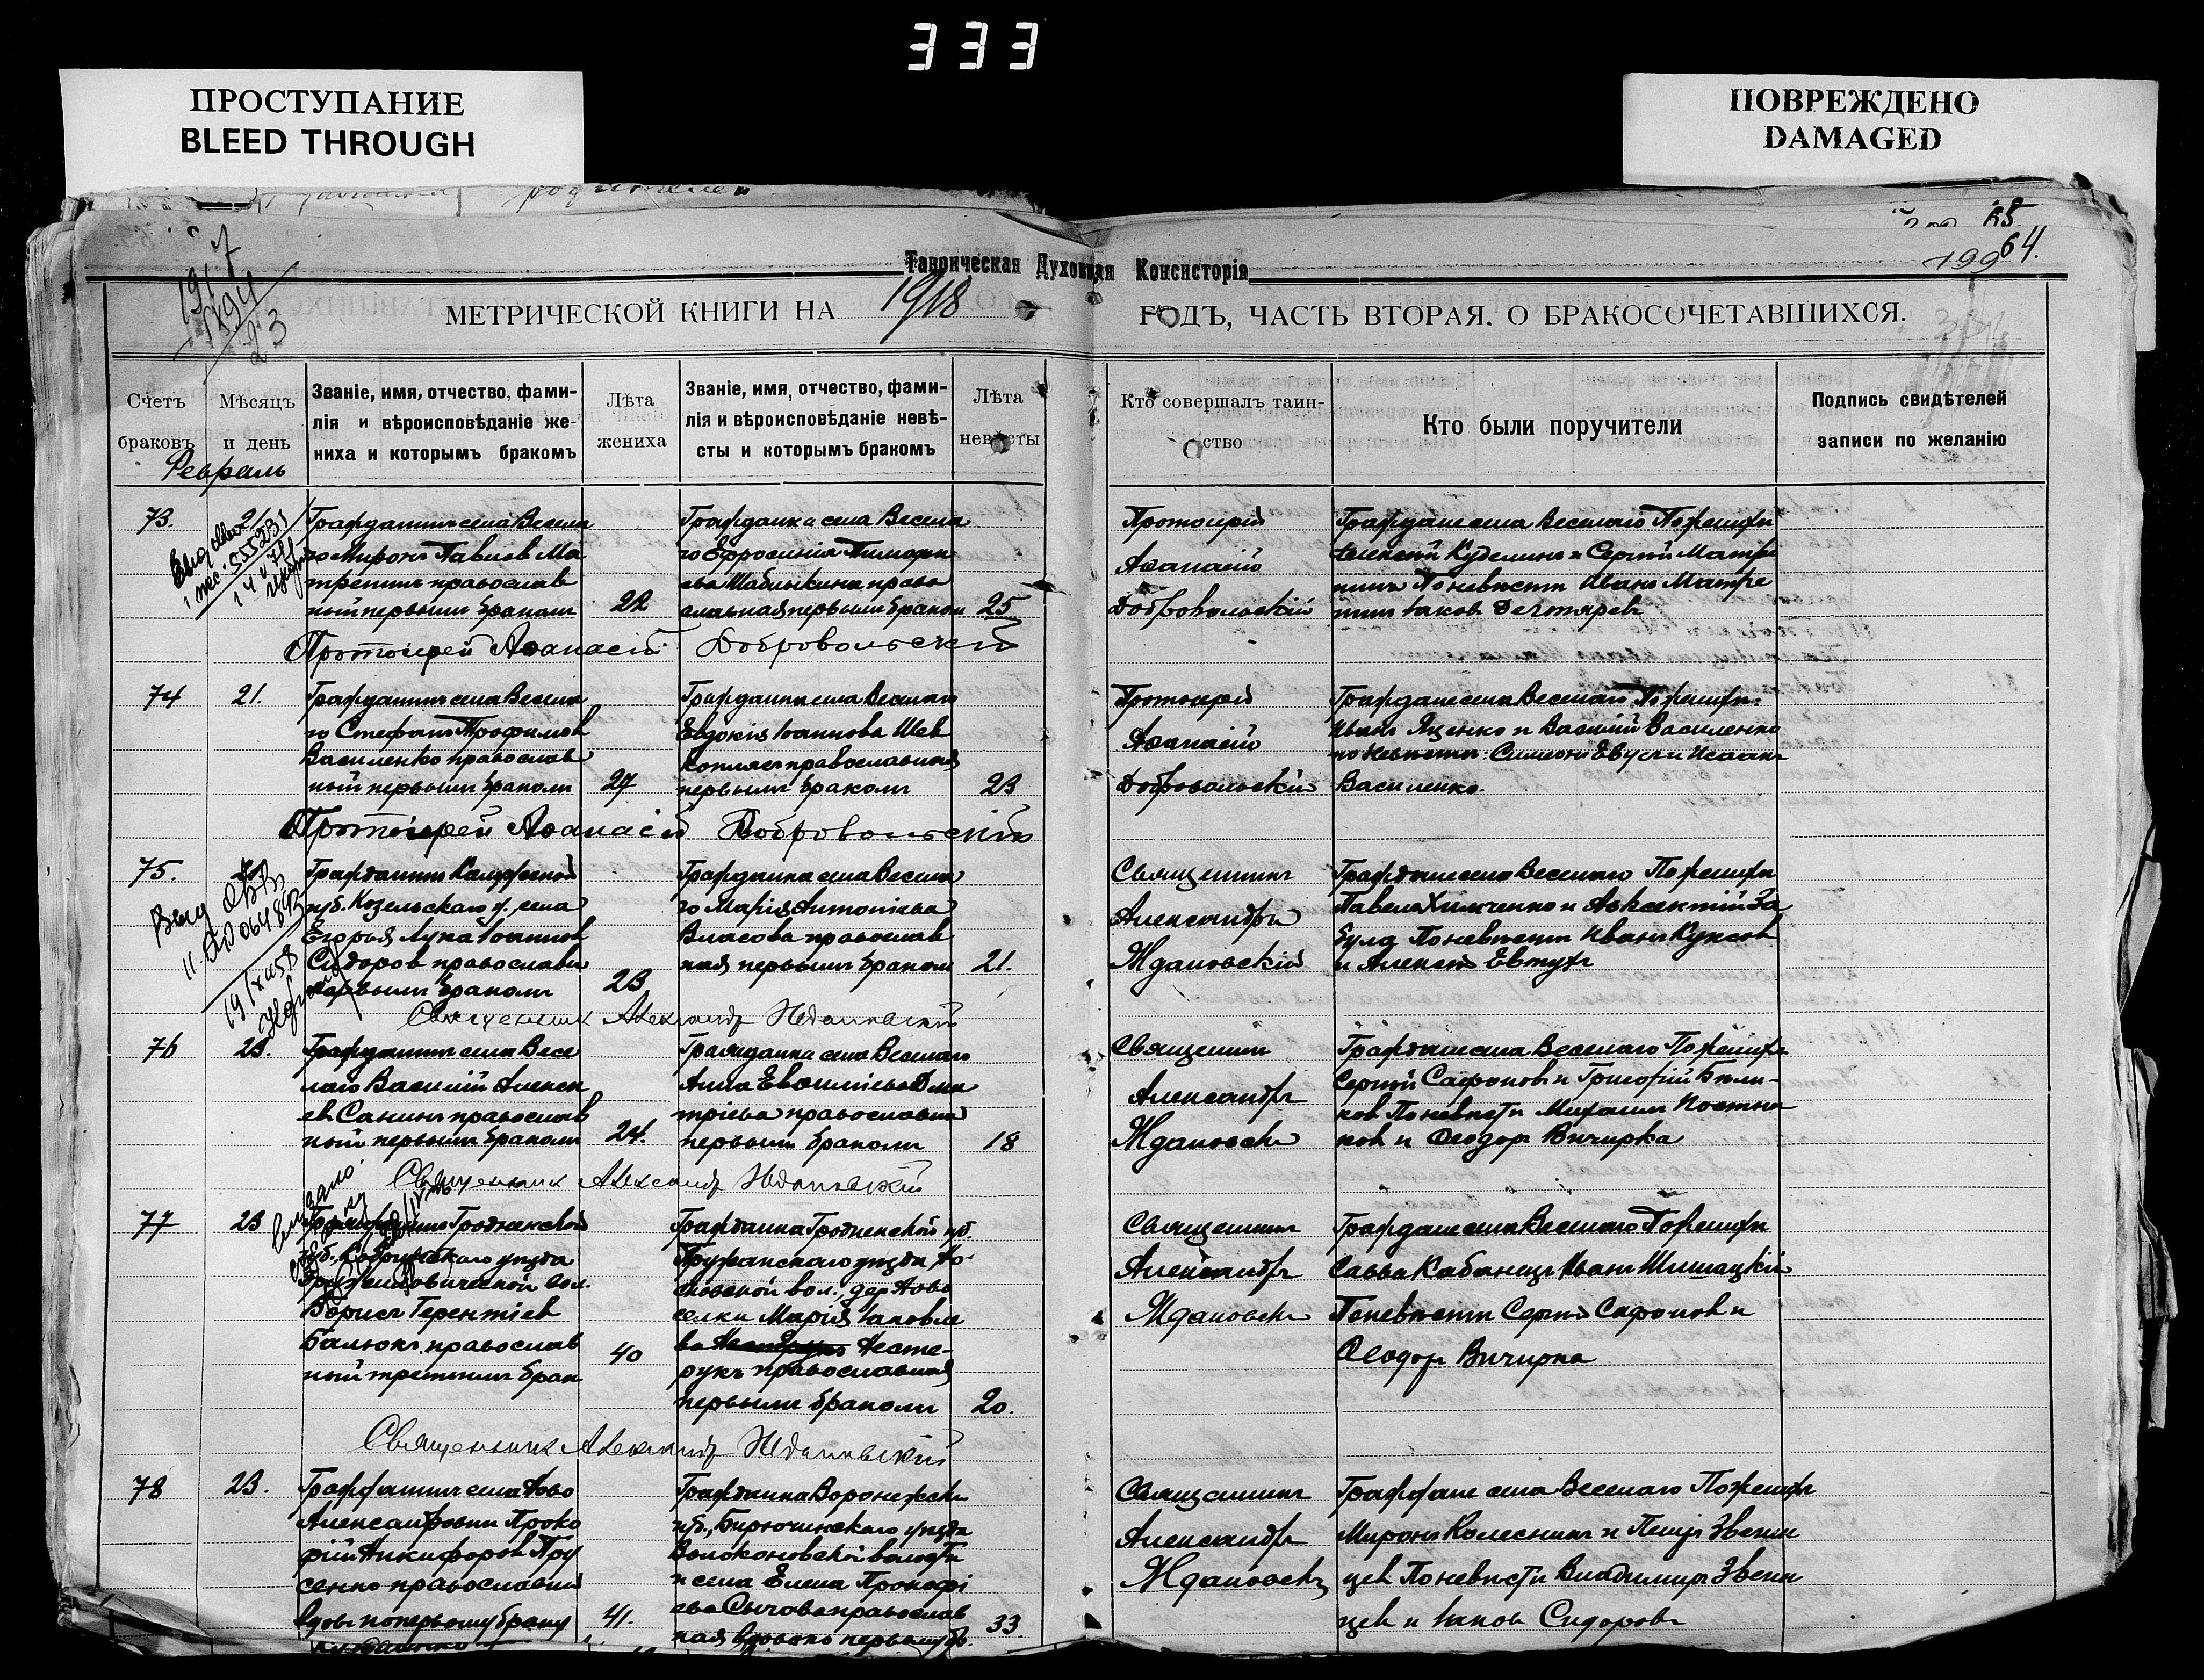 333
ПРОСТУПАНИЕ
BLEED THROUGH
ПОВРЕЖДЕНО
DAMAGED
родителей
65.
199 64.
1917
1894
23
Таврическая Духовная Консисторія
МЕТРИЧЕСКОЙ КНИГИ НА 1918 ГОДЪ, ЧАСТЬ ВТОРАЯ. О БРАКОСОЧЕТАВШИХСЯ.
Счетъ браковъ
Мѣсяцъ и день
Званіе, имя, отчество, фами-
лія и вѣроисповѣданіе же-
ниха и которымъ бракомъ
Лѣта
жениха
Званіе, имя, отчество, фами-
лія и вѣроисповѣданіе невѣ-
сты и которымъ бракомъ
Лѣта
невѣсты
Кто совершалъ таин-
ство
Кто были поручители
Подпись свидѣтелей
записи по желанію
Февраль
73.
21.
Гражданинъ села Весела
го Миронъ Павловъ Ма
тренинъ православ
ный первымъ бракомъ
22
Гражданка села Весела
го Ефросинія Тимофее
ва Шаблыкина право
славная первымъ бракомъ
25
Протоіерей
Аѳанасій
Добровольскій
Граждане села Веселаго По жениху
Алексѣй Куделинъ и Сергѣй Матре
нинъ По невѣстѣ Иванъ Матре
нинъ Іаковъ Дегтяревъ
Протоіерей Аѳанасій Добровольский
74
21.
Гражданинъ села Весела
го Стефанъ Трофимовъ
Василенко православ
ный первымъ бракомъ
27
Гражданка села Веселаго
Евдокія Іоаннова Шев
православная
первымъ бракомъ
23
Протоіерей
Аѳанасій
Добровольскій
Граждане села Веселаго По жениху:
Иванъ Яценко и Василій Василенко
по невѣстѣ: Симеонъ Евсуг и Исаакъ
Василенко.
Протоіерей Аѳанасій Добровольскій
75.
Гражданинъ Калужской
губ. Козельскаго у., села
Егорья Лука Іоанновъ
Сидоровъ православн
первымъ бракомъ
23
Гражданка села Весела
го Марія Антоніева
Власова православ
ная первымъ бракомъ
21.
Священникъ
Александръ
Ждановскій
Граждане села Веселаго По жениху
Павелъ Химченко и Авксентій За
була По невѣстѣ Иванъ Куксовъ
и Алексѣй Евтухъ
Священник Александр Ждановский
76
23.
Гражданинъ села Весе
лаго Василій Алексѣ
евъ Санинъ православ
ный первымъ бракомъ
24.
Гражданка села Веселаго
Анна Евѳиміева Дми
тріева православная
первымъ бракомъ
18
Священникъ
Александръ
Ждановскі
Граждане села Веселаго По жениху
Сергѣй Сафоновъ и Григорій Бѣли-
ковъ По невѣстѣ Михаилъ Постни
ковъ и Ѳеодоръ Вичирка
Священник Александр Ждановский
77
23
Гражданинъ Гродненской
губ. Кобринскаго уѣзда
вол.
Борисъ Терентіевъ
Балюкъ православ
ный третьимъ брак
40
Гражданка Гродненской губ.
Пружанскаго уѣзда
вол., дер Ново
селки Марія Іаковле
ва Несте-
рукъ православная
первымъ бракомъ
20.
Священникъ
Александръ
Ждановскі
Граждане села Веселаго По жениху
Савва Кабанецъ Иванъ Шишацкій
По невѣстѣ Сергѣй Сафоновъ и
Ѳеодоръ Вичирка
Священник Александр Ждановский
78
23.
Гражданинъ села Ново
Александровки Проко
фій Никифоровъ Пру
сенко православный
вдовъ по первому браку
41.
Гражданка Воронежск
губ., Бирюченскаго уѣзда
Волоконовской волости
и села Елена Прокофі
ева Сычова православ
ная вдова по первому бр.
33.
Священникъ
Александръ
Ждановскі
Граждане села Веселаго По жениху
Миронъ Колесникъ и Петръ Звени
цев По невѣстѣ Владимиръ Звени
цев и Іаковъ Сидоровъ